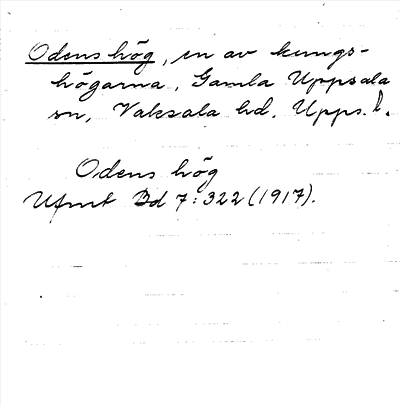 Odens hög, en av kungs-
högarna, Gamla Uppsala
sn, Vaksala hd. Upps. l.
Odens hög
Ufmt Bd 7:322 (1917).